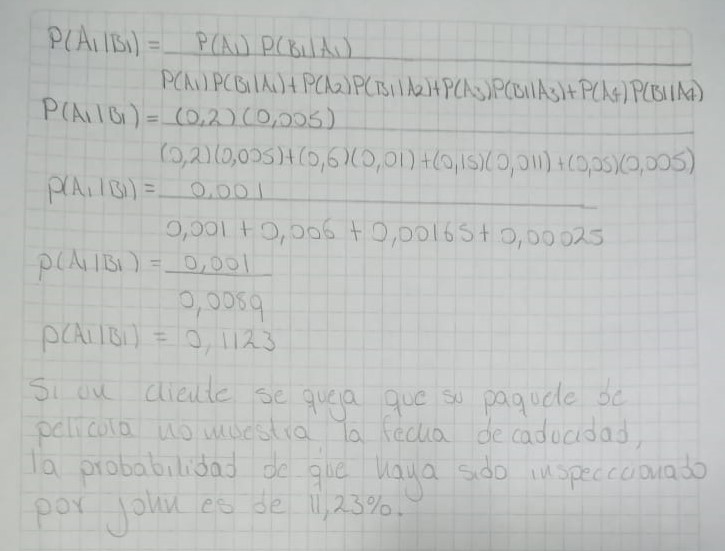 P(A₁|B₁) = P(A₁) P(B₁|A₁)
P(A₁)P(B₁|A₁)+P(A₂)P(B₁|A₂)+P(A₃)P(B₁|A₃)+P(A₄)P(B₁|A₄)
P(A₁|B₁) = (0,2)(0,005)
(0,2)(0,005)+(0,6)(0,01)+(0,15)(0,011)+(0,05)(0,005)
P(A₁|B₁) = 0,001
0,001 + 0,006 + 0,00165 + 0,00025
P(A₁|B₁) = 0,001
0,0089
P(A₁|B₁) = 0,1123
Si un cliente se queja que su paquete de
pelicula no muestra la fecha de caducidad,
la probabilidad de que haya sido inspeccionado
por john es de 11,23%.